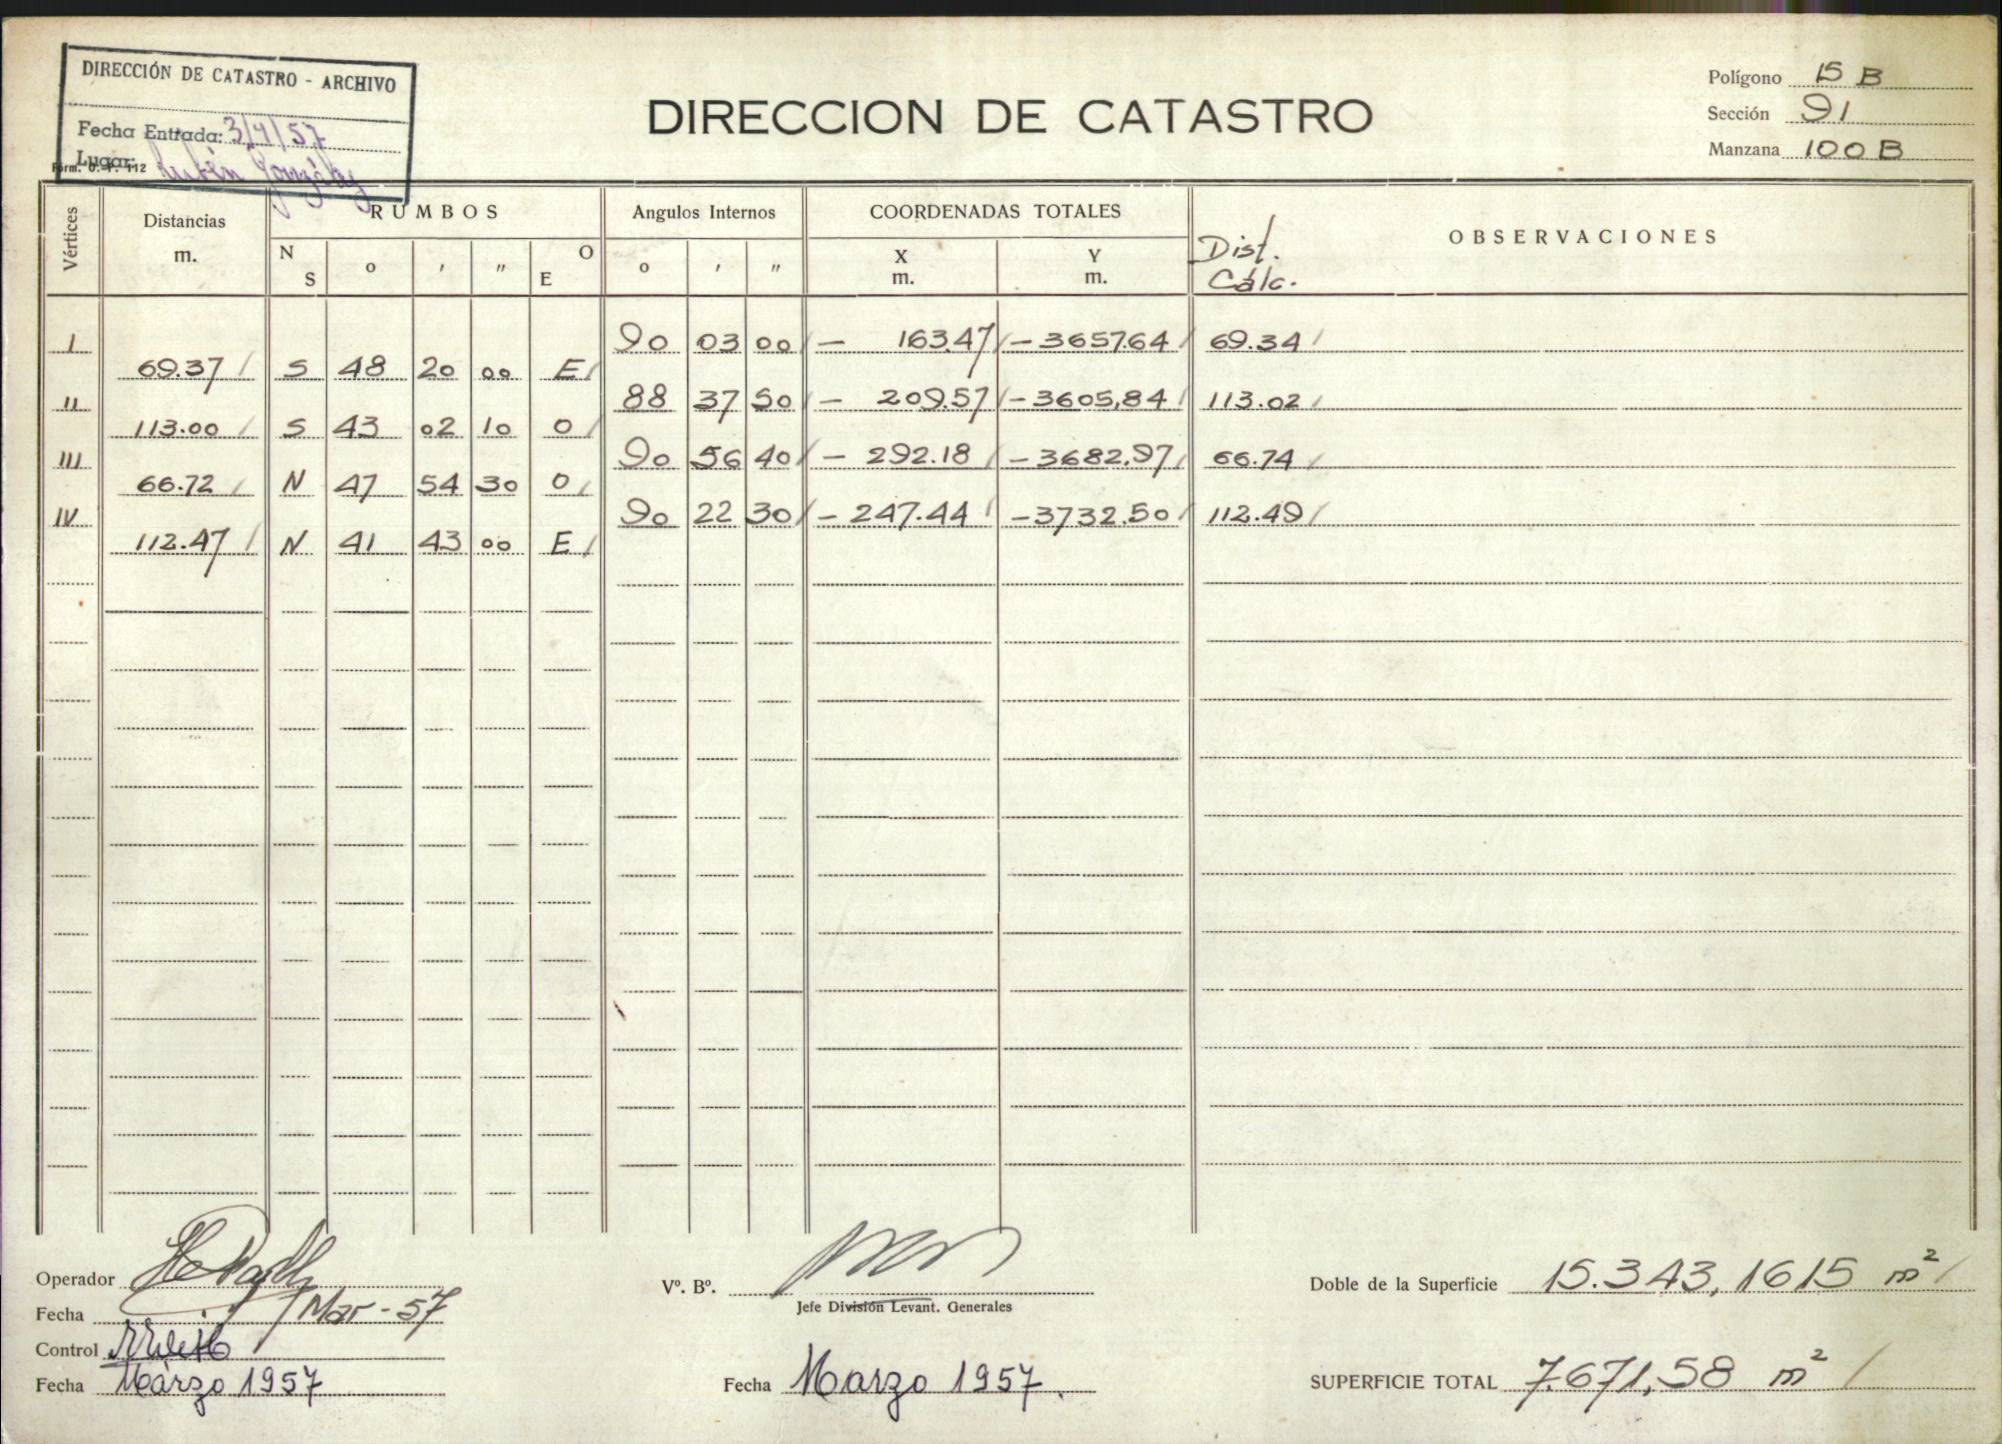 DIRECCIÓN DE CATASTRO - ARCHIVO
Fecha Entrada: 3/4/57
Lugar: Rubén González
Form. O. P. 112
DIRECCION DE CATASTRO
Polígono 15 B
Sección 91
Manzana 100 B
Vértices Distancias m. RUMBOS Angulos Internos COORDENADAS TOTALES Dist. Cálc. OBSERVACIONES
N S o ' " O E o ' " X m. Y m.
I 90 03 00 - 163.47 - 3657.64 69.34
69.37 S 48 20 00 E
II 88 37 50 - 209.57 - 3605,84 113.02
113.00 S 43 02 10 O
III 90 56 40 - 292.18 - 3682,97 66.74
66.72 N 47 54 30 O
IV 90 22 30 - 247.44 - 3732.50 112.49
112.47 N 41 43 00 E
Operador
Fecha Mar - 57
Control
Fecha Marzo 1957
Vº. Bº.
Jefe División Levant. Generales
Fecha Marzo 1957.
Doble de la Superficie 15.343,1615 m²
SUPERFICIE TOTAL 7.671,58 m²